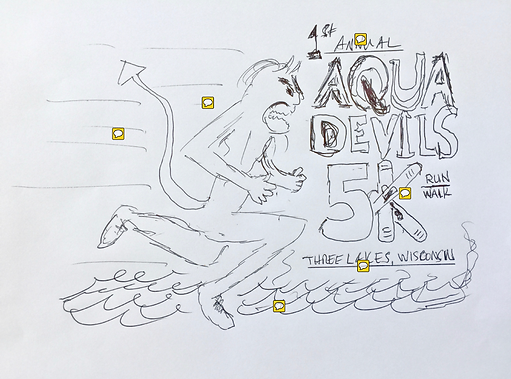 1st ANNUAL
AQUA
DEVILS
5K RUN
WALK
THREE LAKES, WISCONSIN